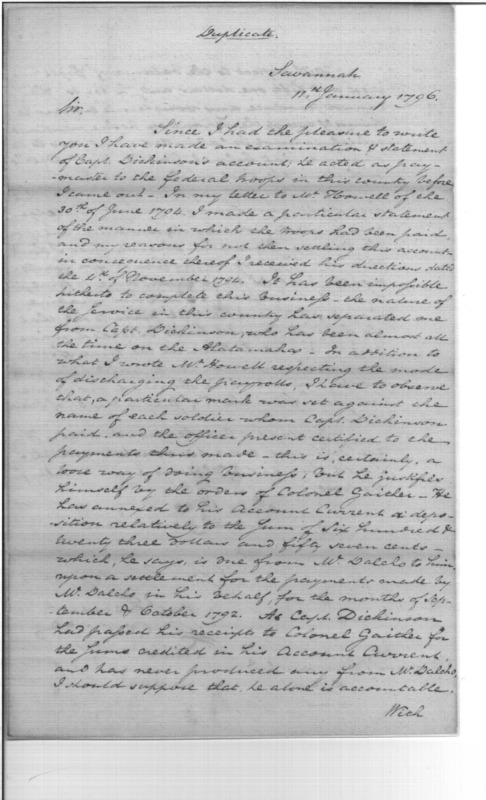 Duplicate.
Savannah
11.th January 1796.
Sir.
Since I had the pleasure to write
you I have made an examination & statement
of Capt. Dickinson's account; he acted as pay-
master to the federal troops in this country before
I came out - In my letter to Mr. Howell of the
30th of June 1794. I made a particular statement
of the manner in which the troops had been paid
and my reasons for not then settling this account-
in consequence thereof I received his directions dated
the 4th of November 1794. It has been impossible
hitherto to complete this business - the nature of
the Service in this country has separated me
from Capt. Dickinson, who has been almost all
the time on the Alatamaha - In addition to
what I wrote Mr. Howell respecting the mode
of discharging the payrolls, I have to observe
that, a particular mark was set against the
name of each soldier whom Capt. Dickinson
paid, and the officer present certified to the
payments thus made - this is, certainly, a
loose way of doing business; but he justifies
himself by the orders of Colonel Gaither - He
has annexed to his Account Current a depo-
sition relatively to the Sum of Six hundred &
twenty three Dollars and fifty seven cents -
which, he says, is due from Mr. Dalcho to him,
upon a settlement for the payments made by
Mr. Dalcho in his behalf, for the months of Sep-
tember & October 1792. As Capt. Dickinson
had passed his receipts to Colonel Gaither for
the Sums credited in his Account Current,
and has never produced any from Mr. Dalcho,
I should suppose that, he alone is accountable.
With